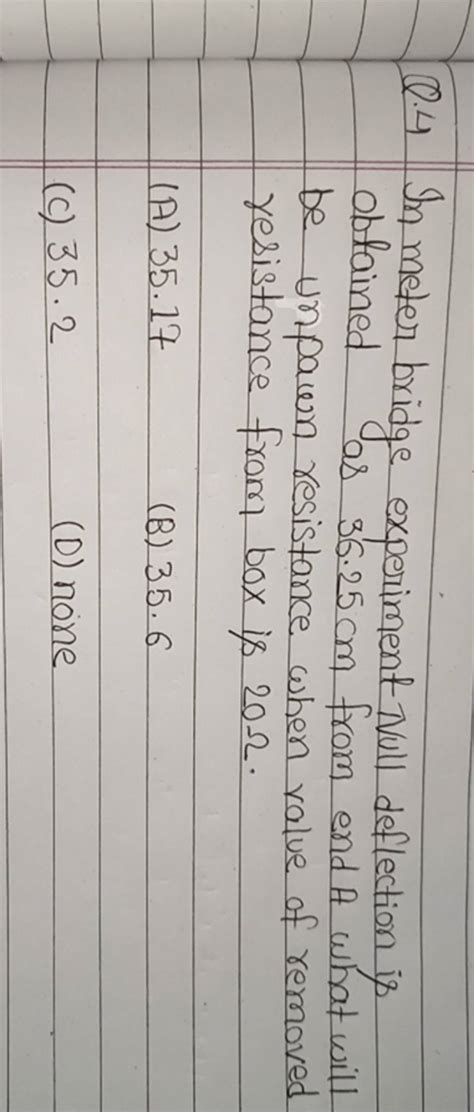 Q.4 In meter bridge experiment Null deflection is
obtained as 36.25 cm from end A what will
be unpawn resistance when value of removed
resistance from box is 20Ω.
(A) 35.17 (B) 35.6
(C) 35.2 (D) none